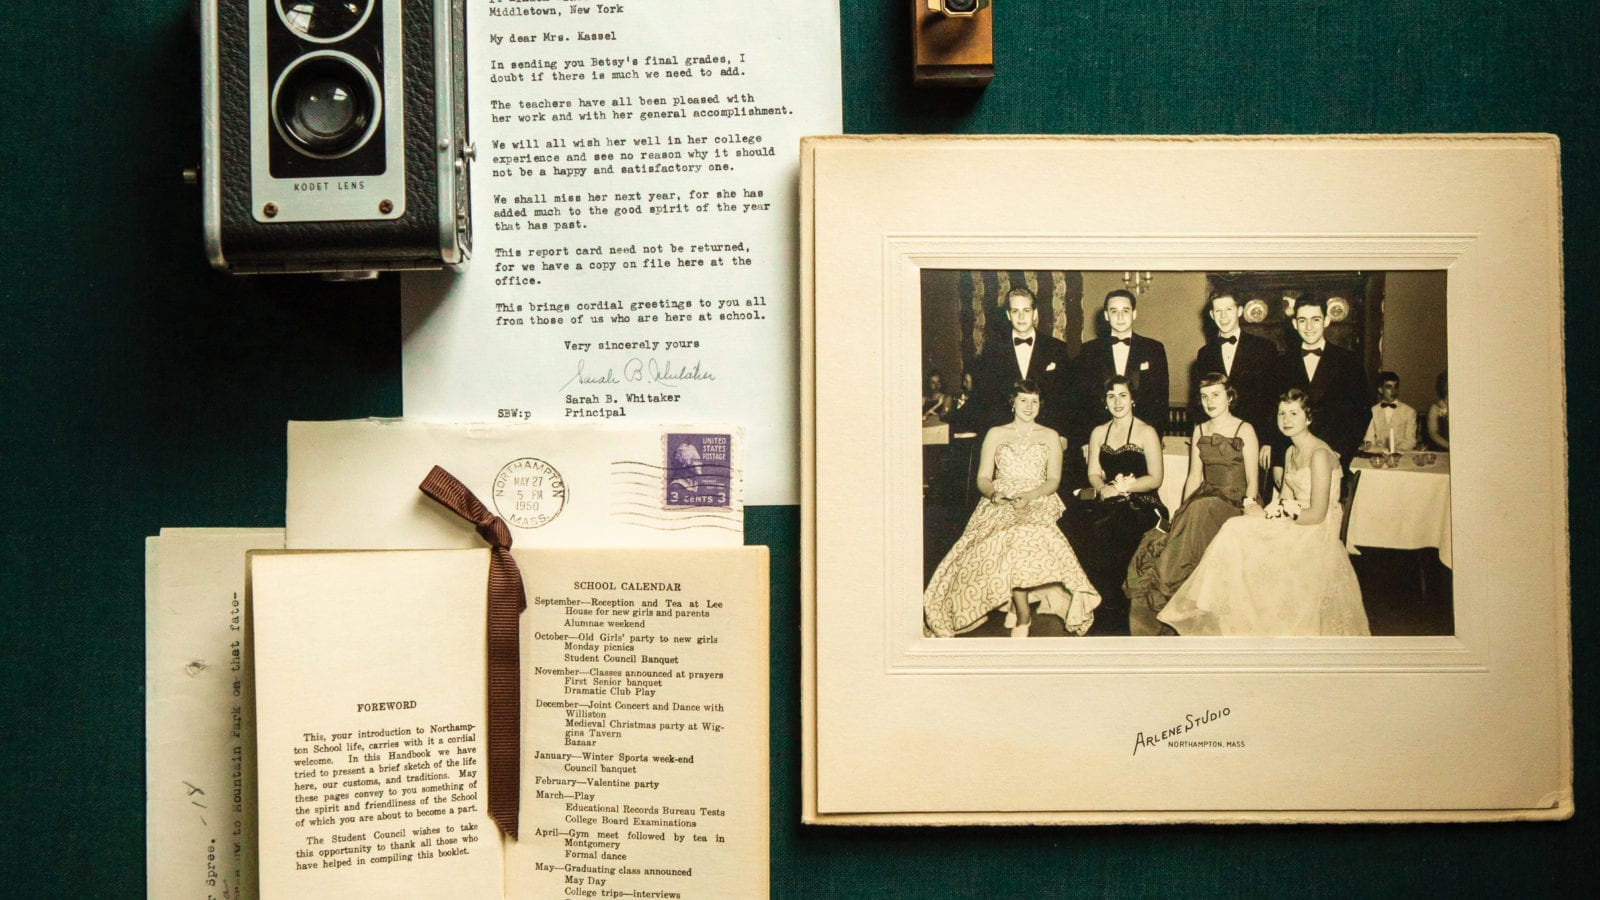 KODET LENS
Middletown, New York
My dear Mrs. Kassel
In sending you Betsy's final grades, I
doubt if there is much we need to add.
The teachers have all been pleased with
her work and with her general accomplishment.
We will all wish her well in her college
experience and see no reason why it should
not be a happy and satisfactory one.
We shall miss her next year, for she has
added much to the good spirit of the year
that has past.
This report card need not be returned,
for we have a copy on file here at the
office.
This brings cordial greetings to you all
from those of us who are here at school.
Very sincerely yours
Sarah B. Whitaker
Sarah B. Whitaker
SBW:p Principal
NORTHAMPTON
MAY 27
5 PM
1950
MASS.
UNITED
STATES
POSTAGE
3 CENTS 3
to Mountain Park on that fate-
Spree.
FOREWORD
This, your introduction to Northamp-
ton School life, carries with it a cordial
welcome. In this Handbook we have
tried to present a brief sketch of the life
here, our customs, and traditions. May
these pages convey to you something of
the spirit and friendliness of the School
of which you are about to become a part.
The Student Council wishes to take
this opportunity to thank all those who
have helped in compiling this booklet.
SCHOOL CALENDAR
September—Reception and Tea at Lee
House for new girls and parents
Alumnae weekend
October—Old Girls' party to new girls
Monday picnics
Student Council Banquet
November—Classes announced at prayers
First Senior banquet
Dramatic Club Play
December—Joint Concert and Dance with
Williston
Medieval Christmas party at Wig-
gins Tavern
Bazaar
January—Winter Sports week-end
Council banquet
February—Valentine party
March—Play
Educational Records Bureau Tests
College Board Examinations
April—Gym meet followed by tea in
Montgomery
Formal dance
May—Graduating class announced
May Day
College trips—interviews
ARLENE STUDIO
NORTHAMPTON, MASS